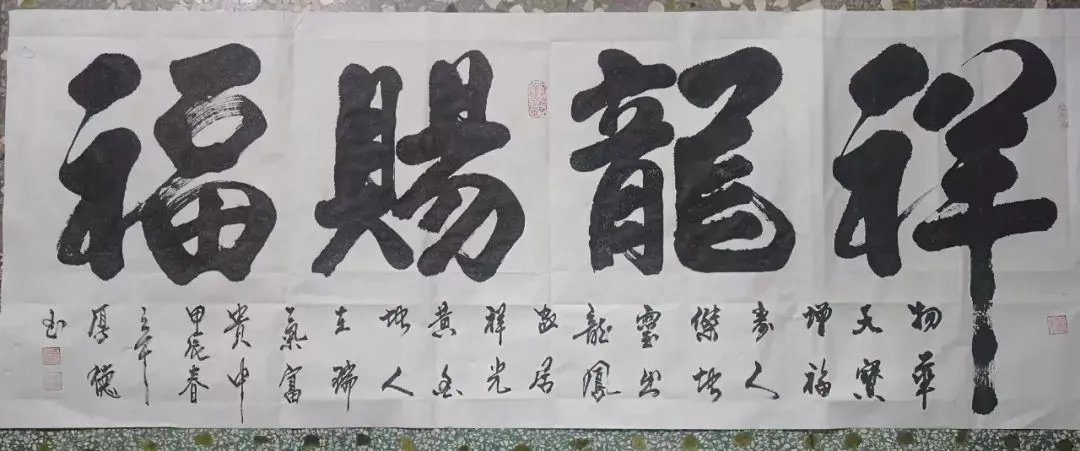 祥龍賜福
物華
天寶
增福
壽人
傑地
靈出
龍鳳
居
祥光
黃金
地人
在瑞
氣富
貴中
甲辰春
厚德